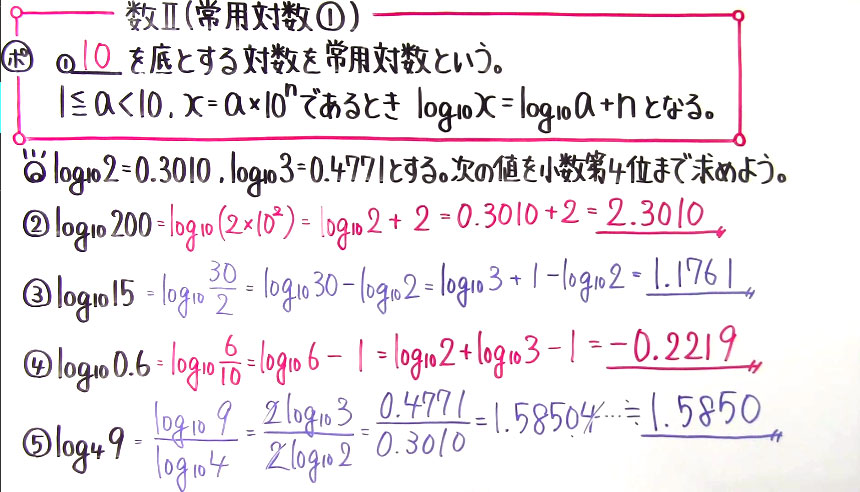 数Ⅱ(常用対数①)
ポ ① 10 を底とする対数を常用対数という。
1≦a<10, x=a×10ⁿであるとき log₁₀x=log₁₀a+nとなる。
log₁₀2=0.3010, log₁₀3=0.4771とする。次の値を小数第4位まで求めよう。
②log₁₀200=log₁₀(2×10²)=log₁₀2+2=0.3010+2=2.3010
③log₁₀15=log₁₀30/2=log₁₀30-log₁₀2=log₁₀3+1-log₁₀2=1.1761
④log₁₀0.6=log₁₀6/10=log₁₀6-1=log₁₀2+log₁₀3-1=-0.2219
⑤log₄9=log₁₀9/log₁₀4=2log₁₀3/2log₁₀2=0.4771/0.3010=1.58504…≒1.5850